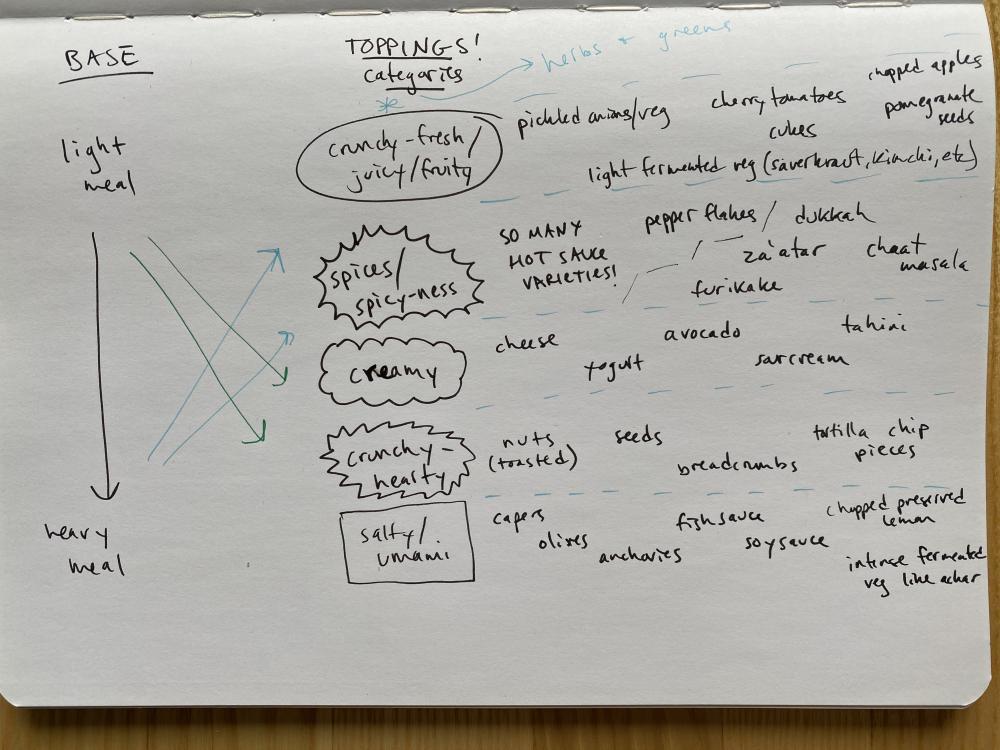 BASE
TOPPINGS!
categories
* → herbs + greens
light
meal
heavy
meal
crunchy-fresh/
juicy/fruity
pickled onions/veg
cherry tomatoes
cukes
chopped apples
pomegranate
seeds
light fermented veg (sauerkraut, kimchi, etc)
spices/
spicy-ness
SO MANY
HOT SAUCE
VARIETIES!
pepper flakes / dukkah
za'atar
furikake
chaat
masala
creamy
cheese
yogurt
avocado
sour cream
tahini
crunchy-
hearty
nuts
(toasted)
seeds
breadcrumbs
tortilla chip
pieces
salty/
umami
capers
olives
anchovies
fish sauce
soy sauce
chopped preserved
lemon
intense fermented
veg like achar